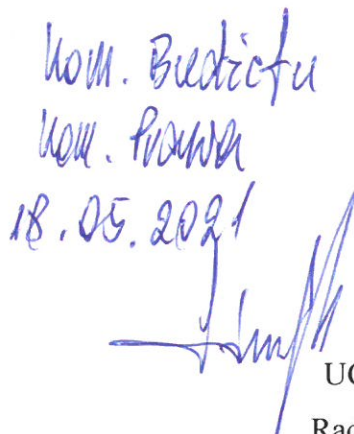 Kom. Budżetu
Kom. Prawa
18.05.2021